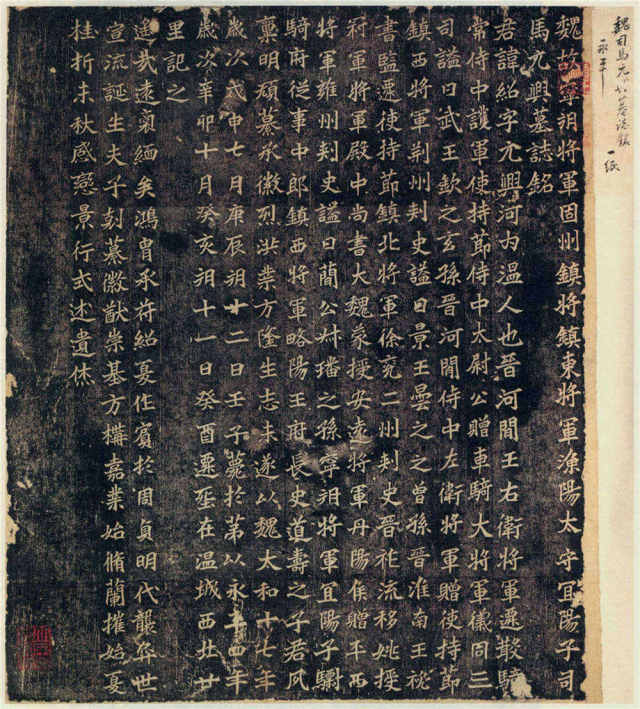 魏司馬元興墓誌銘
永平
一紙
魏故寧朔將軍固州鎮將鎮東將軍漁陽太守宜陽子司
馬元興墓誌銘
君諱紹字元興河內溫人也晉河間王右衛將軍遷散騎
常侍中護軍使持節侍中太尉公贈車騎大將軍儀同三
司謚曰武王欽之玄孫晉河間侍中左衛將軍贈使持節
鎮西將軍荊州刺史謚曰景王曇之之曾孫晉淮南王祕
書監遷使持節鎮北將軍徐兗二州刺史晉祚流移姚授
冠軍將軍殿中尚書大魏蒙授安遠將軍丹陽侯贈平西
將軍雍州刺史謚曰簡公叔璠之孫寧朔將軍宜陽子驃
騎府從事中郎鎮西將軍略陽王府長史道壽之子若夙
稟明頎纂承徽烈洪業方隆生志未遂以魏太和十七年
歲次戊申七月庚辰朔十二日壬子薨於第以永平四年
歲次辛卯十月癸亥朔十一日癸酉遷塟在溫城西北廿
里記之
遙哉遠裔緬矣鴻胄承苻紹夏作賓於周貞明代襲弈世
宣流誕生夫子剋纂徽猷崇基方構嘉業始脩蘭摧始夏
桂折未秋感戀景行式述遺休